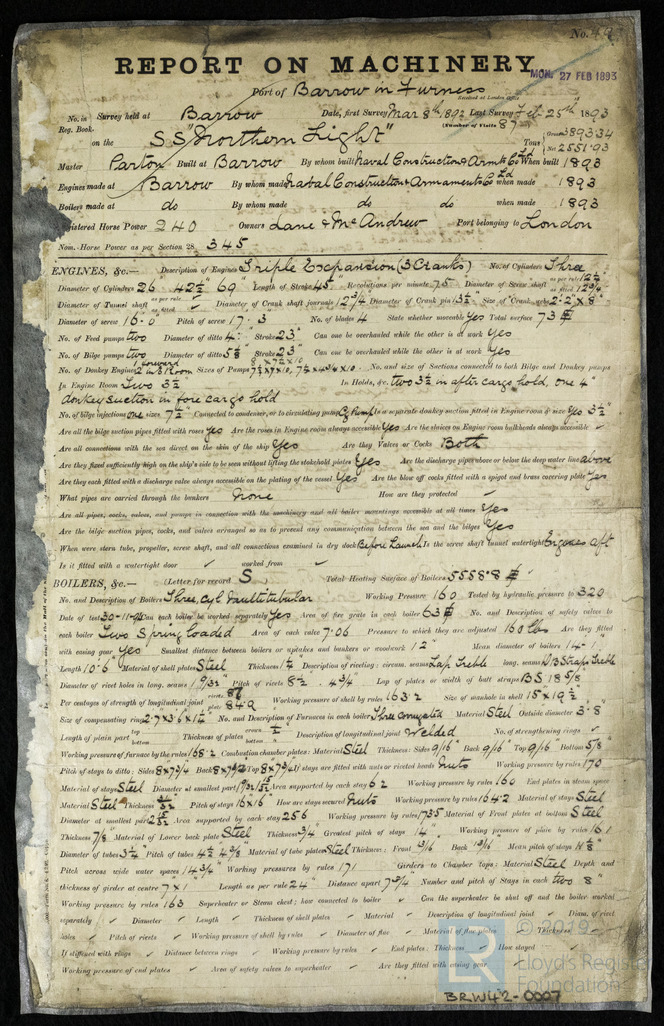 No. 49
REPORT ON MACHINERY.
MON. 27 FEB 1893
Port of Barrow in Furness
Received at London Office
No. in Survey held at Barrow Date, first Survey Mar 8th, 1892 Last Survey Feb 25th 1893
Reg. Book. (Number of Visits 87)
on the S.S. "Northern Light" Tons Gross 3893.34 Net 2551.93
Master Parton Built at Barrow By whom built Naval Construction & Armts Co Ld When built 1893
Engines made at Barrow By whom made Naval Construction & Armaments Co Ld when made 1893
Boilers made at do By whom made do do when made 1893
Registered Horse Power 240 Owners Lane & McAndrew Port belonging to London
Nom. Horse Power as per Section 28 345
ENGINES, &c.— Description of Engines Triple Expansion (3 Cranks) No. of Cylinders Three
Diameter of Cylinders 26 42½" 69" Length of Stroke 45" Revolutions per minute 75 Diameter of Screw shaft as per rule 12¼ as fitted 12¾
Diameter of Tunnel shaft as per rule as fitted Diameter of Crank shaft journals 12¾ Diameter of Crank pin 13½ Size of Crank webs 2'.2" x 8"
Diameter of screw 16.0" Pitch of screw 17.3 No. of blades 4 State whether moveable Yes Total surface 73
No. of Feed pumps two Diameter of ditto 4" Stroke 23" Can one be overhauled while the other is at work Yes
No. of Bilge pumps two Diameter of ditto Stroke 23" Can one be overhauled while the other is at work Yes
No. of Donkey Engines 1 forward 2 in E Room Sizes of Pumps No. and size of Suctions connected to both Bilge and Donkey pumps
In Engine Room Two 3½ In Holds, &c. two 3½ in after cargo hold, one 4"
donkey suction in fore cargo hold
No. of bilge injections one sizes 7½" Connected to condenser, or to circulating pump Cg Pump Is a separate donkey suction fitted in Engine room & size Yes 3½"
Are all the bilge suction pipes fitted with roses Yes Are the roses in Engine room always accessible Yes Are the sluices on Engine room bulkheads always accessible
Are all connections with the sea direct on the skin of the ship Yes Are they Valves or Cocks Both
Are they fixed sufficiently high on the ship's side to be seen without lifting the stokehold plates Yes Are the discharge pipes above or below the deep water line above
Are they each fitted with a discharge valve always accessible on the plating of the vessel Yes Are the blow off cocks fitted with a spigot and brass covering plate Yes
What pipes are carried through the bunkers None How are they protected
Are all pipes, cocks, valves, and pumps in connection with the machinery and all boiler mountings accessible at all times Yes
Are the bilge suction pipes, cocks, and valves arranged so as to prevent any communication between the sea and the bilges Yes
When were stern tube, propeller, screw shaft, and all connections examined in dry dock Before Launch Is the screw shaft tunnel watertight Engines aft
Is it fitted with a watertight door worked from
BOILERS, &c.— (Letter for record S Total Heating Surface of Boilers 5558.8
No. and Description of Boilers Three, Cyl. Multitubular Working Pressure 160 Tested by hydraulic pressure to 320
Date of test 30-11-92 Can each boiler be worked separately Yes Area of fire grate in each boiler 63 No. and Description of safety valves to
each boiler Two Spring loaded Area of each valve 7.06 Pressure to which they are adjusted 160 lbs Are they fitted
with easing gear Yes Smallest distance between boilers or uptakes and bunkers or woodwork 12" Mean diameter of boilers 14'.1"
Length 10'.6" Material of shell plates Steel Thickness Description of riveting: circum. seams Lap Treble long. seams D.B. Straps Treble
Diameter of rivet holes in long. seams 1 9/32" Pitch of rivets 8½ . 4¾" Lap of plates or width of butt straps B.S. 18 5/8
Per centages of strength of longitudinal joint rivets 87 plate 84.9 Working pressure of shell by rules 163.2 Size of manhole in shell 15" x 19½"
Size of compensating ring No. and Description of Furnaces in each boiler Three corrugated Material Steel Outside diameter 3'.8"
Length of plain part top bottom Thickness of plates crown bottom Description of longitudinal joint Welded No. of strengthening rings
Working pressure of furnace by the rules 168.2 Combustion chamber plates: Material Steel Thickness: Sides 9/16" Back 9/16 Top 9/16 Bottom 5/8"
Pitch of stays to ditto: Sides Back Top If stays are fitted with nuts or riveted heads Nuts Working pressure by rules 170
Material of stays Steel Diameter at smallest part Area supported by each stay 62 Working pressure by rules 160 End plates in steam space
Material Steel Thickness Pitch of stays 16 x 16" How are stays secured Nuts Working pressure by rules 164.2 Material of stays Steel
Diameter at smallest part Area supported by each stay 256 Working pressure by rules Material of Front plates at bottom Steel
Thickness 7/8" Material of Lower back plate Steel Thickness 3/4" Greatest pitch of stays 14" Working pressure of plate by rules 161
Diameter of tubes 3¼" Pitch of tubes 4½ 4 3/8 Material of tube plates Steel Thickness: Front Back Mean pitch of stays
Pitch across wide water spaces 14¾" Working pressures by rules 171 Girders to Chamber tops: Material Steel Depth and
thickness of girder at centre 7 x 1" Length as per rule 24" Distance apart 7¾" Number and pitch of Stays in each two 8"
Working pressure by rules 163 Superheater or Steam chest; how connected to boiler Can the superheater be shut off and the boiler worked
separately Diameter Length Thickness of shell plates Material Description of longitudinal joint Diam. of rivet
holes Pitch of rivets Working pressure of shell by rules Diameter of flue Material of flue plates Thickness
If stiffened with rings Distance between rings Working pressure by rules End plates: Thickness How stayed
Working pressure of end plates Area of safety valves to superheater Are they fitted with easing gear
© 2019
Lloyd's Register
Foundation
BRW42-0007